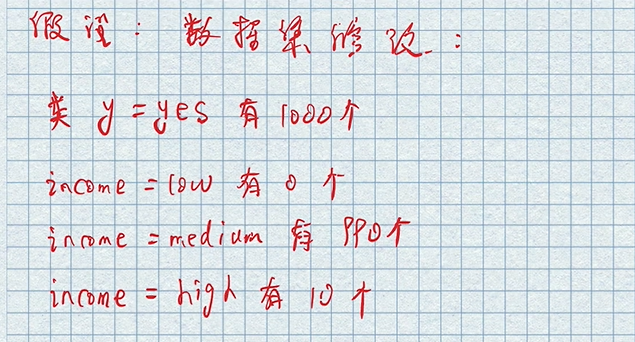 假设：数据集修改：
类 y = yes 有 1000个
income = low 有 0 个
income = medium 有 990个
income = high 有 10 个